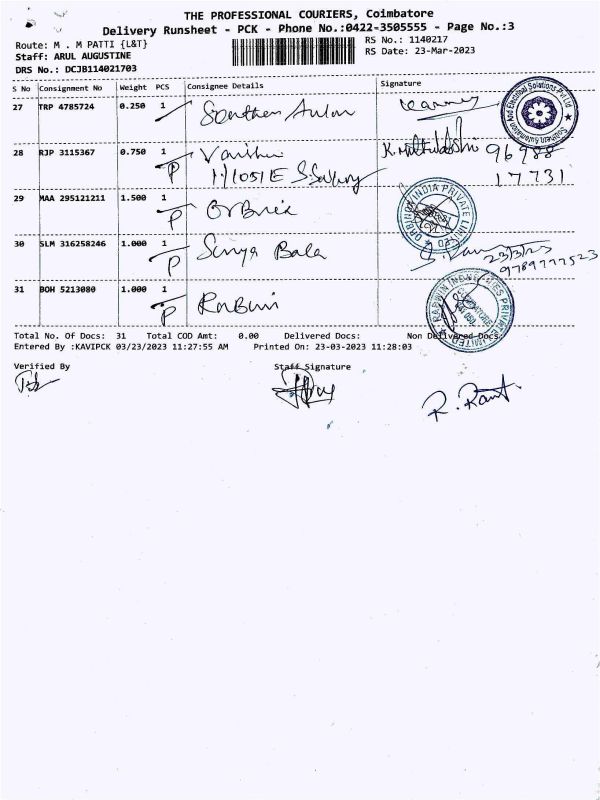 THE PROFESSIONAL COURIERS, Coimbatore
Delivery Runsheet - PCK - Phone No.:0422-3505555 - Page No.:3
Route: M . M PATTI {L&T}
RS No.: 1140217
Staff: ARUL AUGUSTINE
RS Date: 23-Mar-2023
DRS No.: DCJB114021703
S No Consignment No Weight PCS Consignee Details Signature
27 TRP 4785724 0.250 1 Southern
28 RJP 3115367 0.750 1 K. 96988
P 17731
29 MAA 295121211 1.500 1
P
30 SLM 316258246 1.000 1 Surya Bala
P 23/3/23
9789777523
31 BOH 5213080 1.000 1
P
Total No. Of Docs: 31 Total COD Amt: 0.00 Delivered Docs: Non Delivered Docs:
Entered By :KAVIPCK 03/23/2023 11:27:55 AM Printed On: 23-03-2023 11:28:03
Verified By Staff Signature